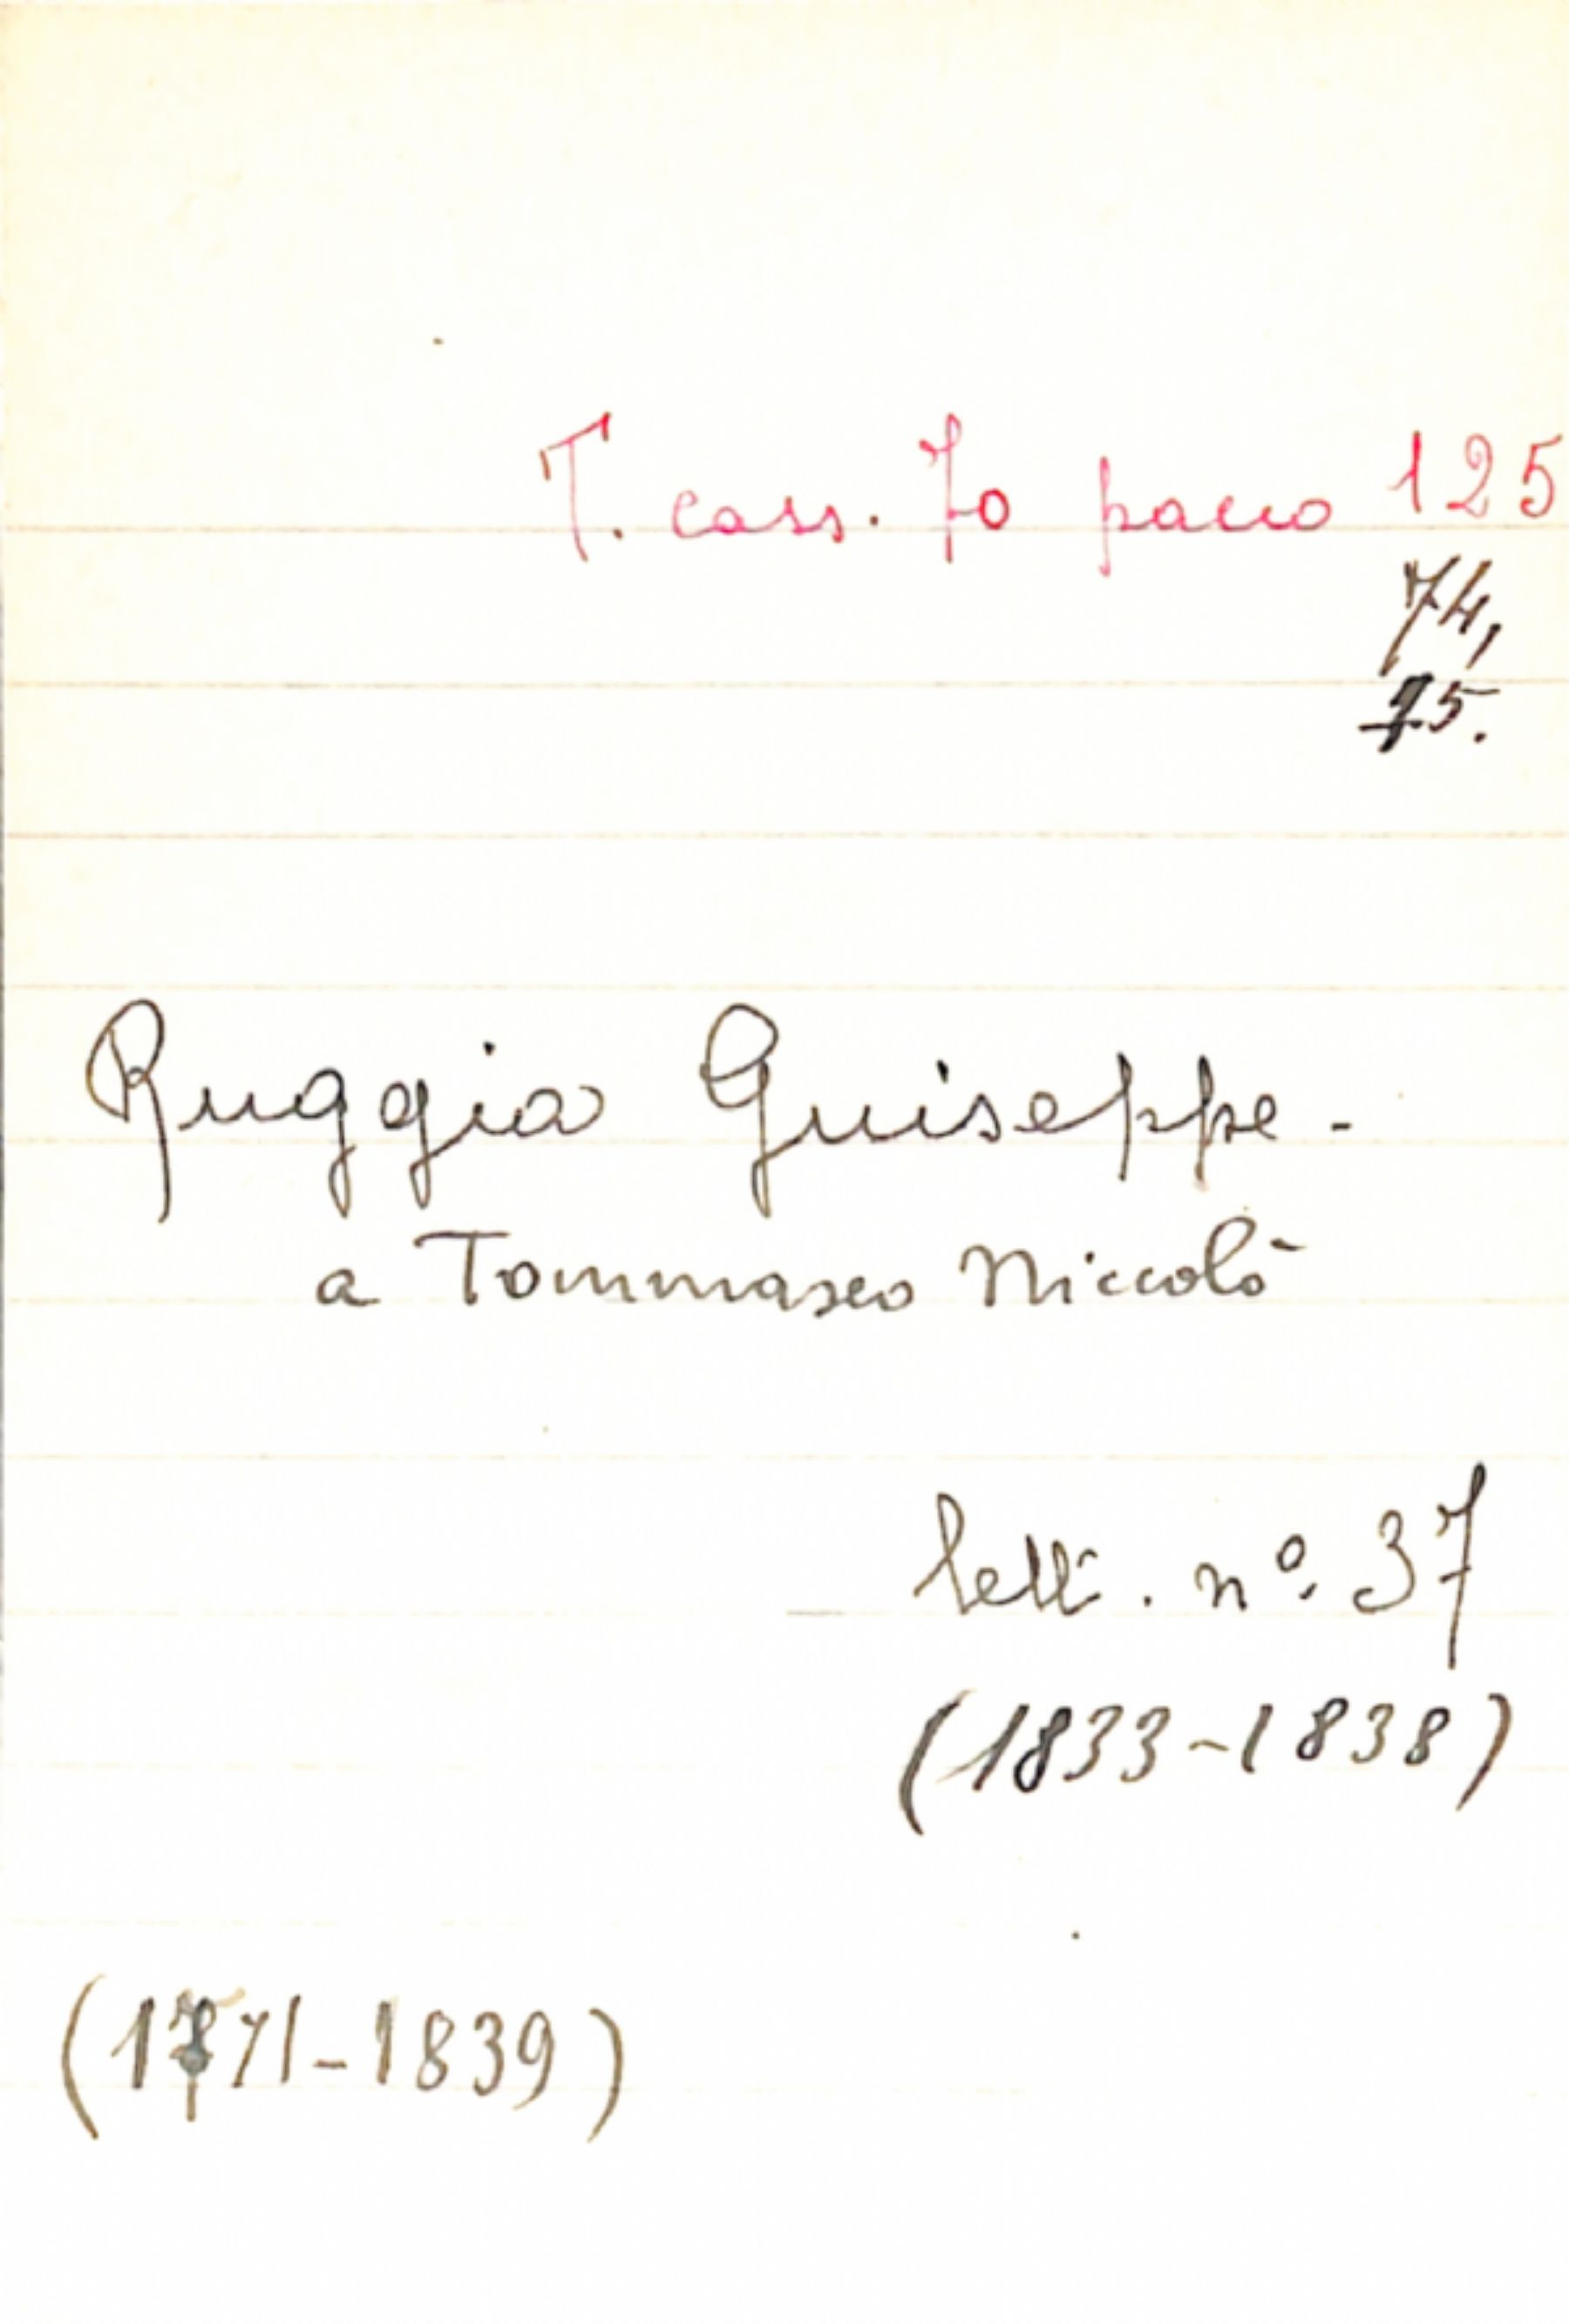 T. cass. 70 pacco 125
74,
75.
Ruggia Giuseppe -
a Tommaseo Niccolò
lett. nº. 37
(1833-1838)
(1771-1839)